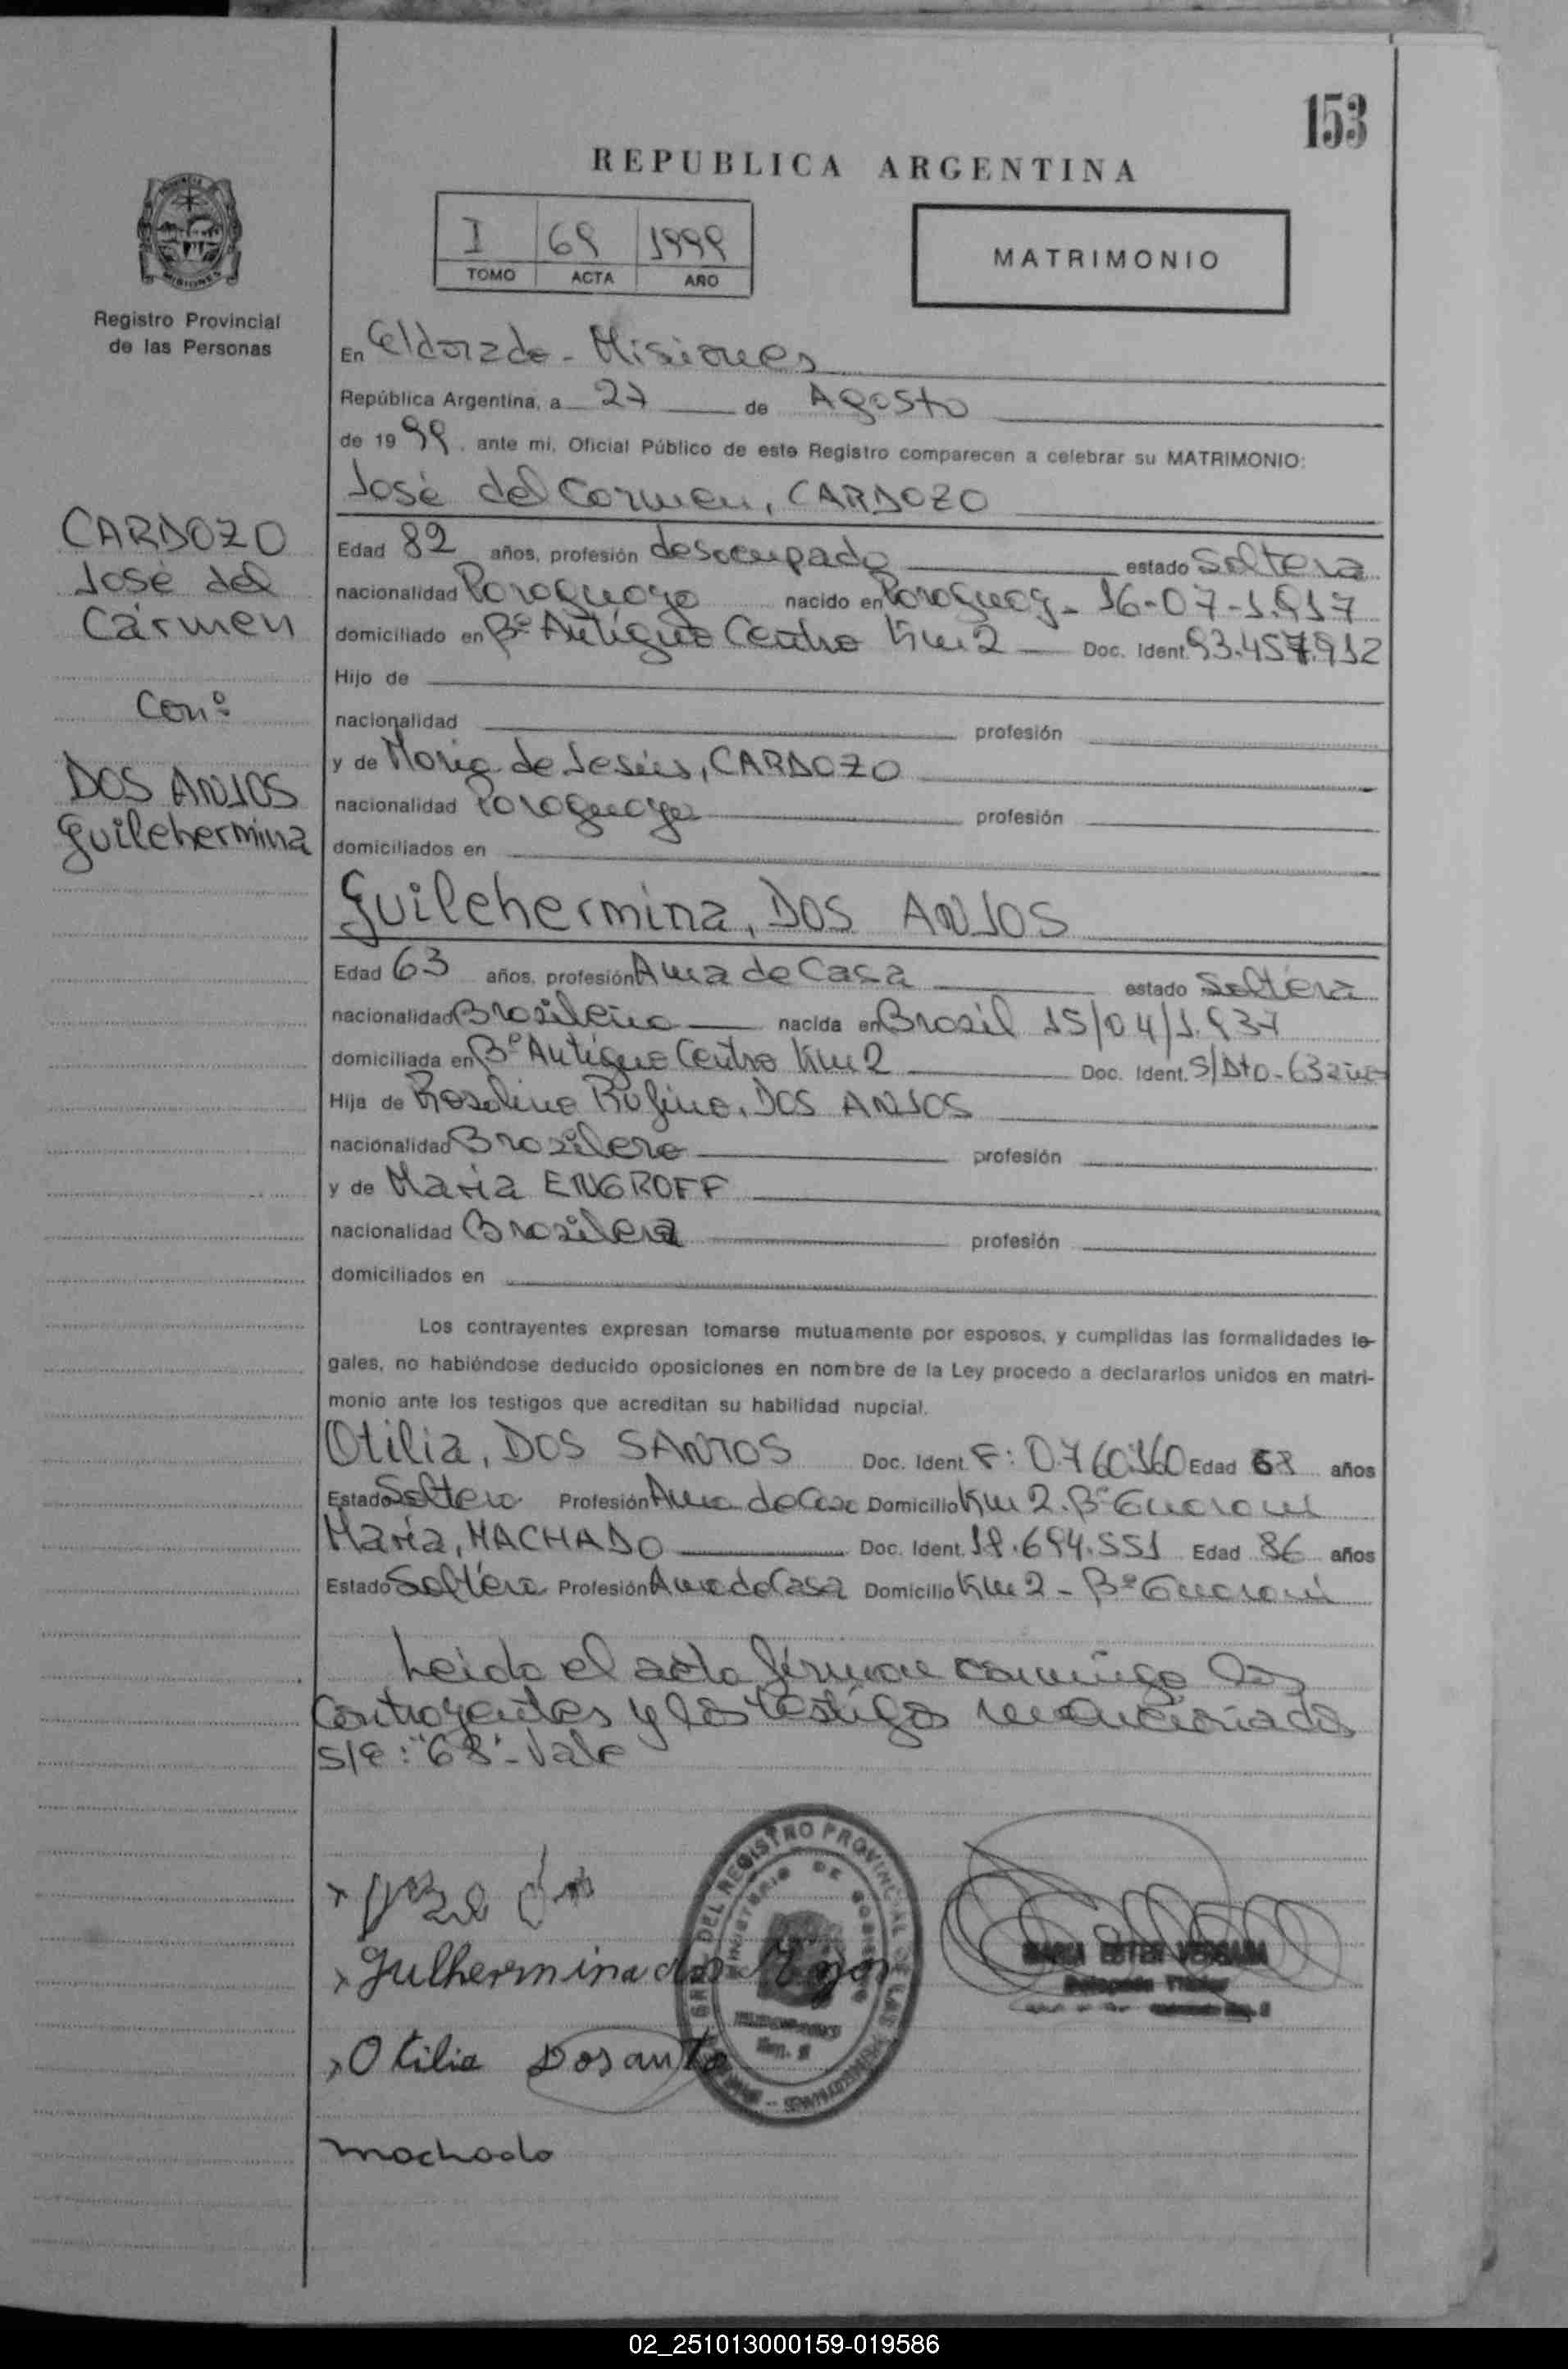 153
REPUBLICA ARGENTINA
I 69 1999
TOMO ACTA AÑO
MATRIMONIO
Registro Provincial
de las Personas
En Eldorado - Misiones
República Argentina, a 27 de Agosto
de 1999, ante mi, Oficial Público de este Registro comparecen a celebrar su MATRIMONIO:
José del Carmen, CARDOZO
CARDOZO
José del
Cármen
Con:
DOS ANJOS
Guilehermina
Edad 82 años, profesión desocupado estado Soltero
nacionalidad Paraguayo nacido en Paraguay - 16-07-1.917
domiciliado en Bº Antiguo Centro Km 2 Doc. Ident. 93.457.912
Hijo de
nacionalidad profesión
y de Maria de Jesús, CARDOZO
nacionalidad Paraguaya profesión
domiciliados en
Guilehermina, DOS ANJOS
Edad 63 años, profesión Ama de Casa estado Soltera
nacionalidad Brasileña nacida en Brasil 15/04/1.937
domiciliada en Bº Antiguo Centro Km 2 Doc. Ident. S/Dto - 63
Hija de Rosalino Rufino, DOS ANJOS
nacionalidad Brasilero profesión
y de Maria ENGROFF
nacionalidad Brasilera profesión
domiciliados en
Los contrayentes expresan tomarse mutuamente por esposos, y cumplidas las formalidades le-
gales, no habiéndose deducido oposiciones en nombre de la Ley procedo a declararlos unidos en matri-
monio ante los testigos que acreditan su habilidad nupcial.
Otilia, DOS SANTOS Doc. Ident. F: 0.760.160 Edad 68 años
Estado Soltera Profesión Ama de Casa Domicilio Km 2. Bº Guarani
Maria, MACHADO Doc. Ident. 18.694.551 Edad 86 años
Estado Soltera Profesión Ama de Casa Domicilio Km 2 - Bº Guarani
Leida el acta firman conmigo los
Contrayentes y los testigos mencionados
S/e: "68" - Vale
Gulhermina dos
Otilia Dosanto
machado
REGISTRO PROVINCIAL DE LAS PERSONAS
MINISTERIO DE GOBIERNO
MARIA ESTER VERGARA
Delegada Titular
02_251013000159-019586